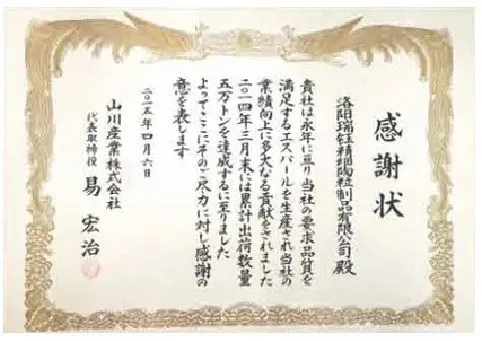 感謝状
洛阳瑞钰精细陶粒制品有限公司 殿
貴社は永年に亘り当社の要求品質を
満足するエスパールを生産され当社の
業績向上に多大なる貢献をされました
二〇一四年三月末には累計出荷数量
五万トンを達成するに至りました
よってここにそのご尽力に対し感謝の
意を表します
二〇一五年四月六日
山川産業株式会社
代表取締役 易 宏治